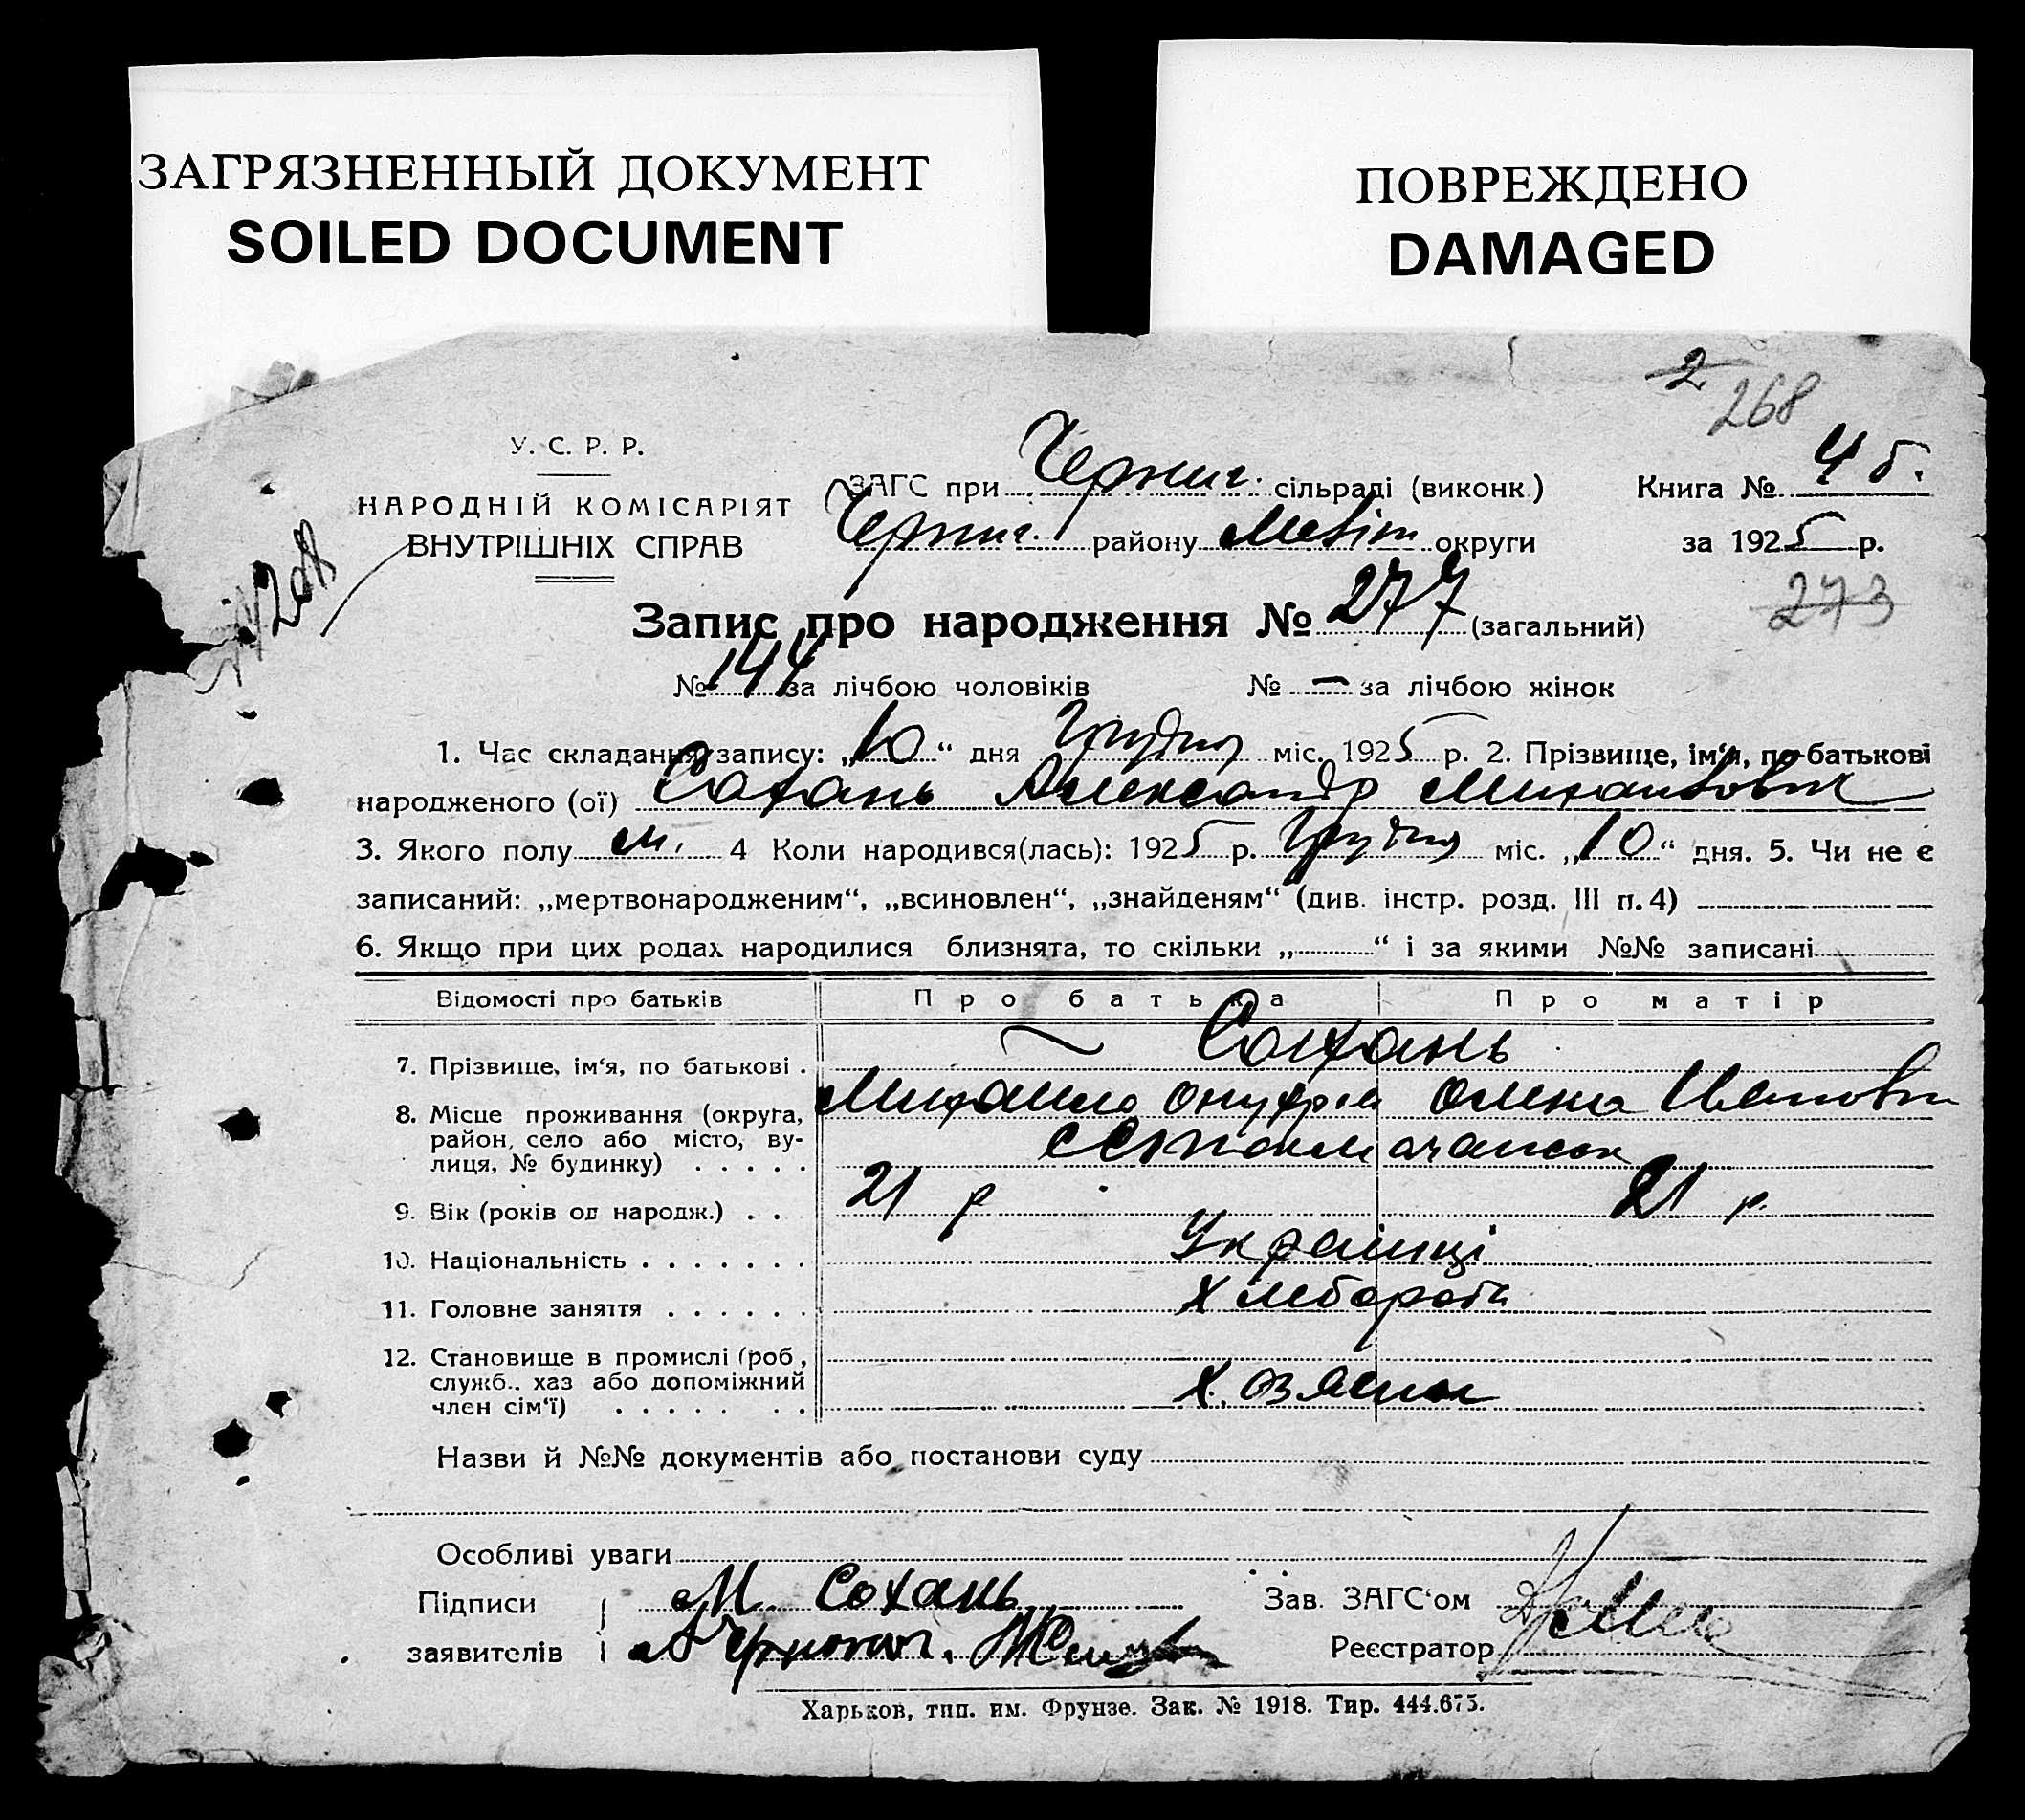 ЗАГРЯЗНЕННЫЙ ДОКУМЕНТ
SOILED DOCUMENT
ПОВРЕЖДЕНО
DAMAGED
2
268
У. С. Р. Р.
НАРОДНІЙ КОМІСАРІЯТ
ВНУТРІШНІХ СПРАВ
ЗАГС при Черниг. сільраді (виконк.) Книга № 4 б.
Черниг. району Меліт округи за 1925 р.
273
Запис про народження № 277 (загальний)
№ 144 за лічбою чоловіків № — за лічбою жінок
1. Час складання запису: „10“ дня Грудня міс. 1925 р. 2. Прізвище, ім‘я, по-батькові
народженого (ої) Сохань Александр Михайлович
3. Якого полу м. 4 Коли народився(лась): 1925 р. Грудня міс. „10“ дня. 5. Чи не є
записаний: „мертвонародженим“, „всиновлен“, „знайденям“ (див. інстр. розд. III п. 4)
6. Якщо при цих родах народилися близнята, то скільки „ “ і за якими №№ записані
Відомості про батьків Про батька Про матір
Сохань
7. Прізвище, ім‘я, по батькові .
Михаило Онуфрів Олена Івановна
8. Місце проживання (округа,
район, село або місто, ву-
лиця, № будинку) . . . . .
9. Вік (років од народж.) . . 21 р 21 р.
10. Національність . . . . . . . Українці
11. Головне заняття . . . . . . Хлебороби
12. Становище в промислі (роб.,
служб., хаз або допоміжний
член сім‘ї) . . . . . . . Хозяин
Назви й №№ документів або постанови суду
Особливі уваги
Підписи М. Сохань Зав. ЗАГС‘ом
заявителів Реєстратор
Харьков, тип. им. Фрунзе. Зак. № 1918. Тир. 444.675.